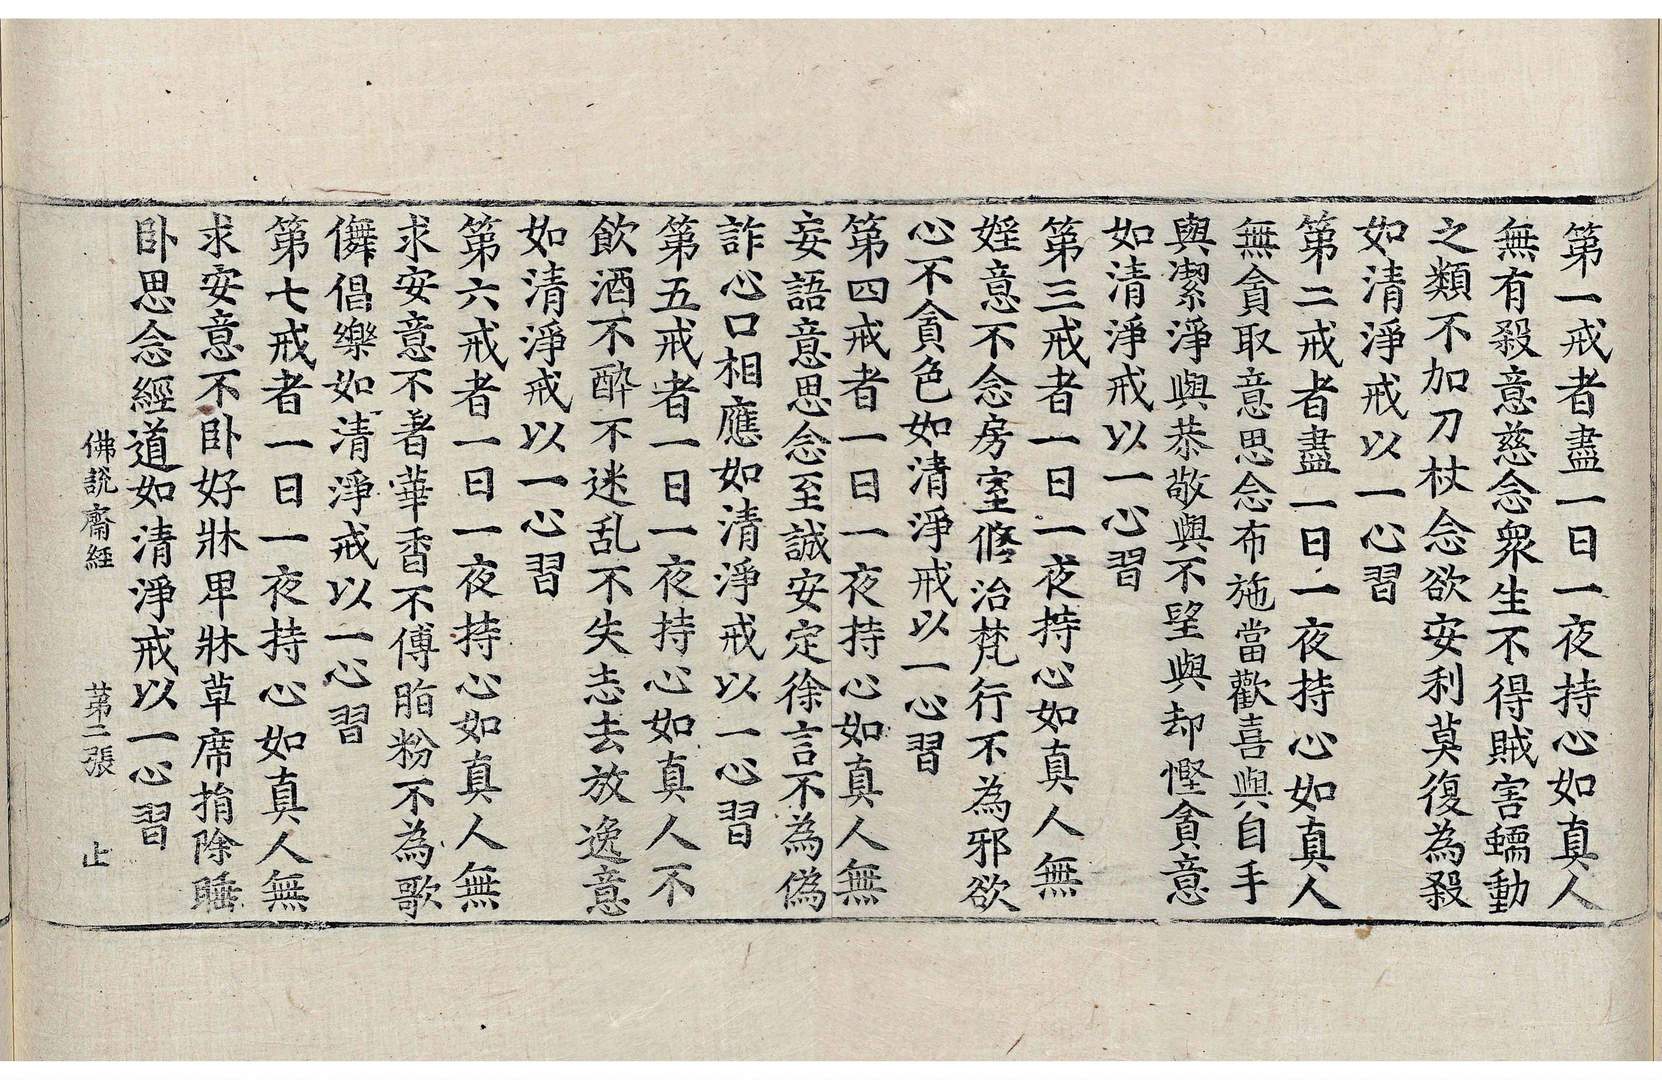 第一戒者盡一日一夜持心如真人
無有殺意慈念衆生不得賊害蠕動
之類不加刀杖念欲安利莫復為殺
如清淨戒以一心習
第二戒者盡一日一夜持心如真人
無貪取意思念布施當歡喜與自手
與潔淨與恭敬與不望與却慳貪意
如清淨戒以一心習
第三戒者一日一夜持心如真人無
婬意不念房室修治梵行不為邪欲
心不貪色如清淨戒以一心習
第四戒者一日一夜持心如真人無
妄語意思念至誠安定徐言不為偽
詐心口相應如清淨戒以一心習
第五戒者一日一夜持心如真人不
飲酒不醉不迷乱不失志去放逸意
如清淨戒以一心習
第六戒者一日一夜持心如真人無
求安意不著華香不傅脂粉不為歌
儛倡樂如清淨戒以一心習
第七戒者一日一夜持心如真人無
求安意不卧好牀卑牀草席捐除睡
卧思念經道如清淨戒以一心習
佛説齋経 苐二張 止